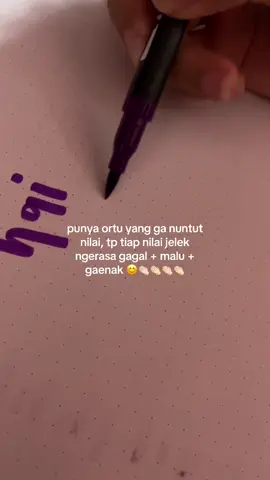 punya ortu yang ga nuntut
nilai, tp tiap nilai jelek
ngerasa gagal + malu +
gaenak 😊👏🏻👏🏻👏🏻👏🏻